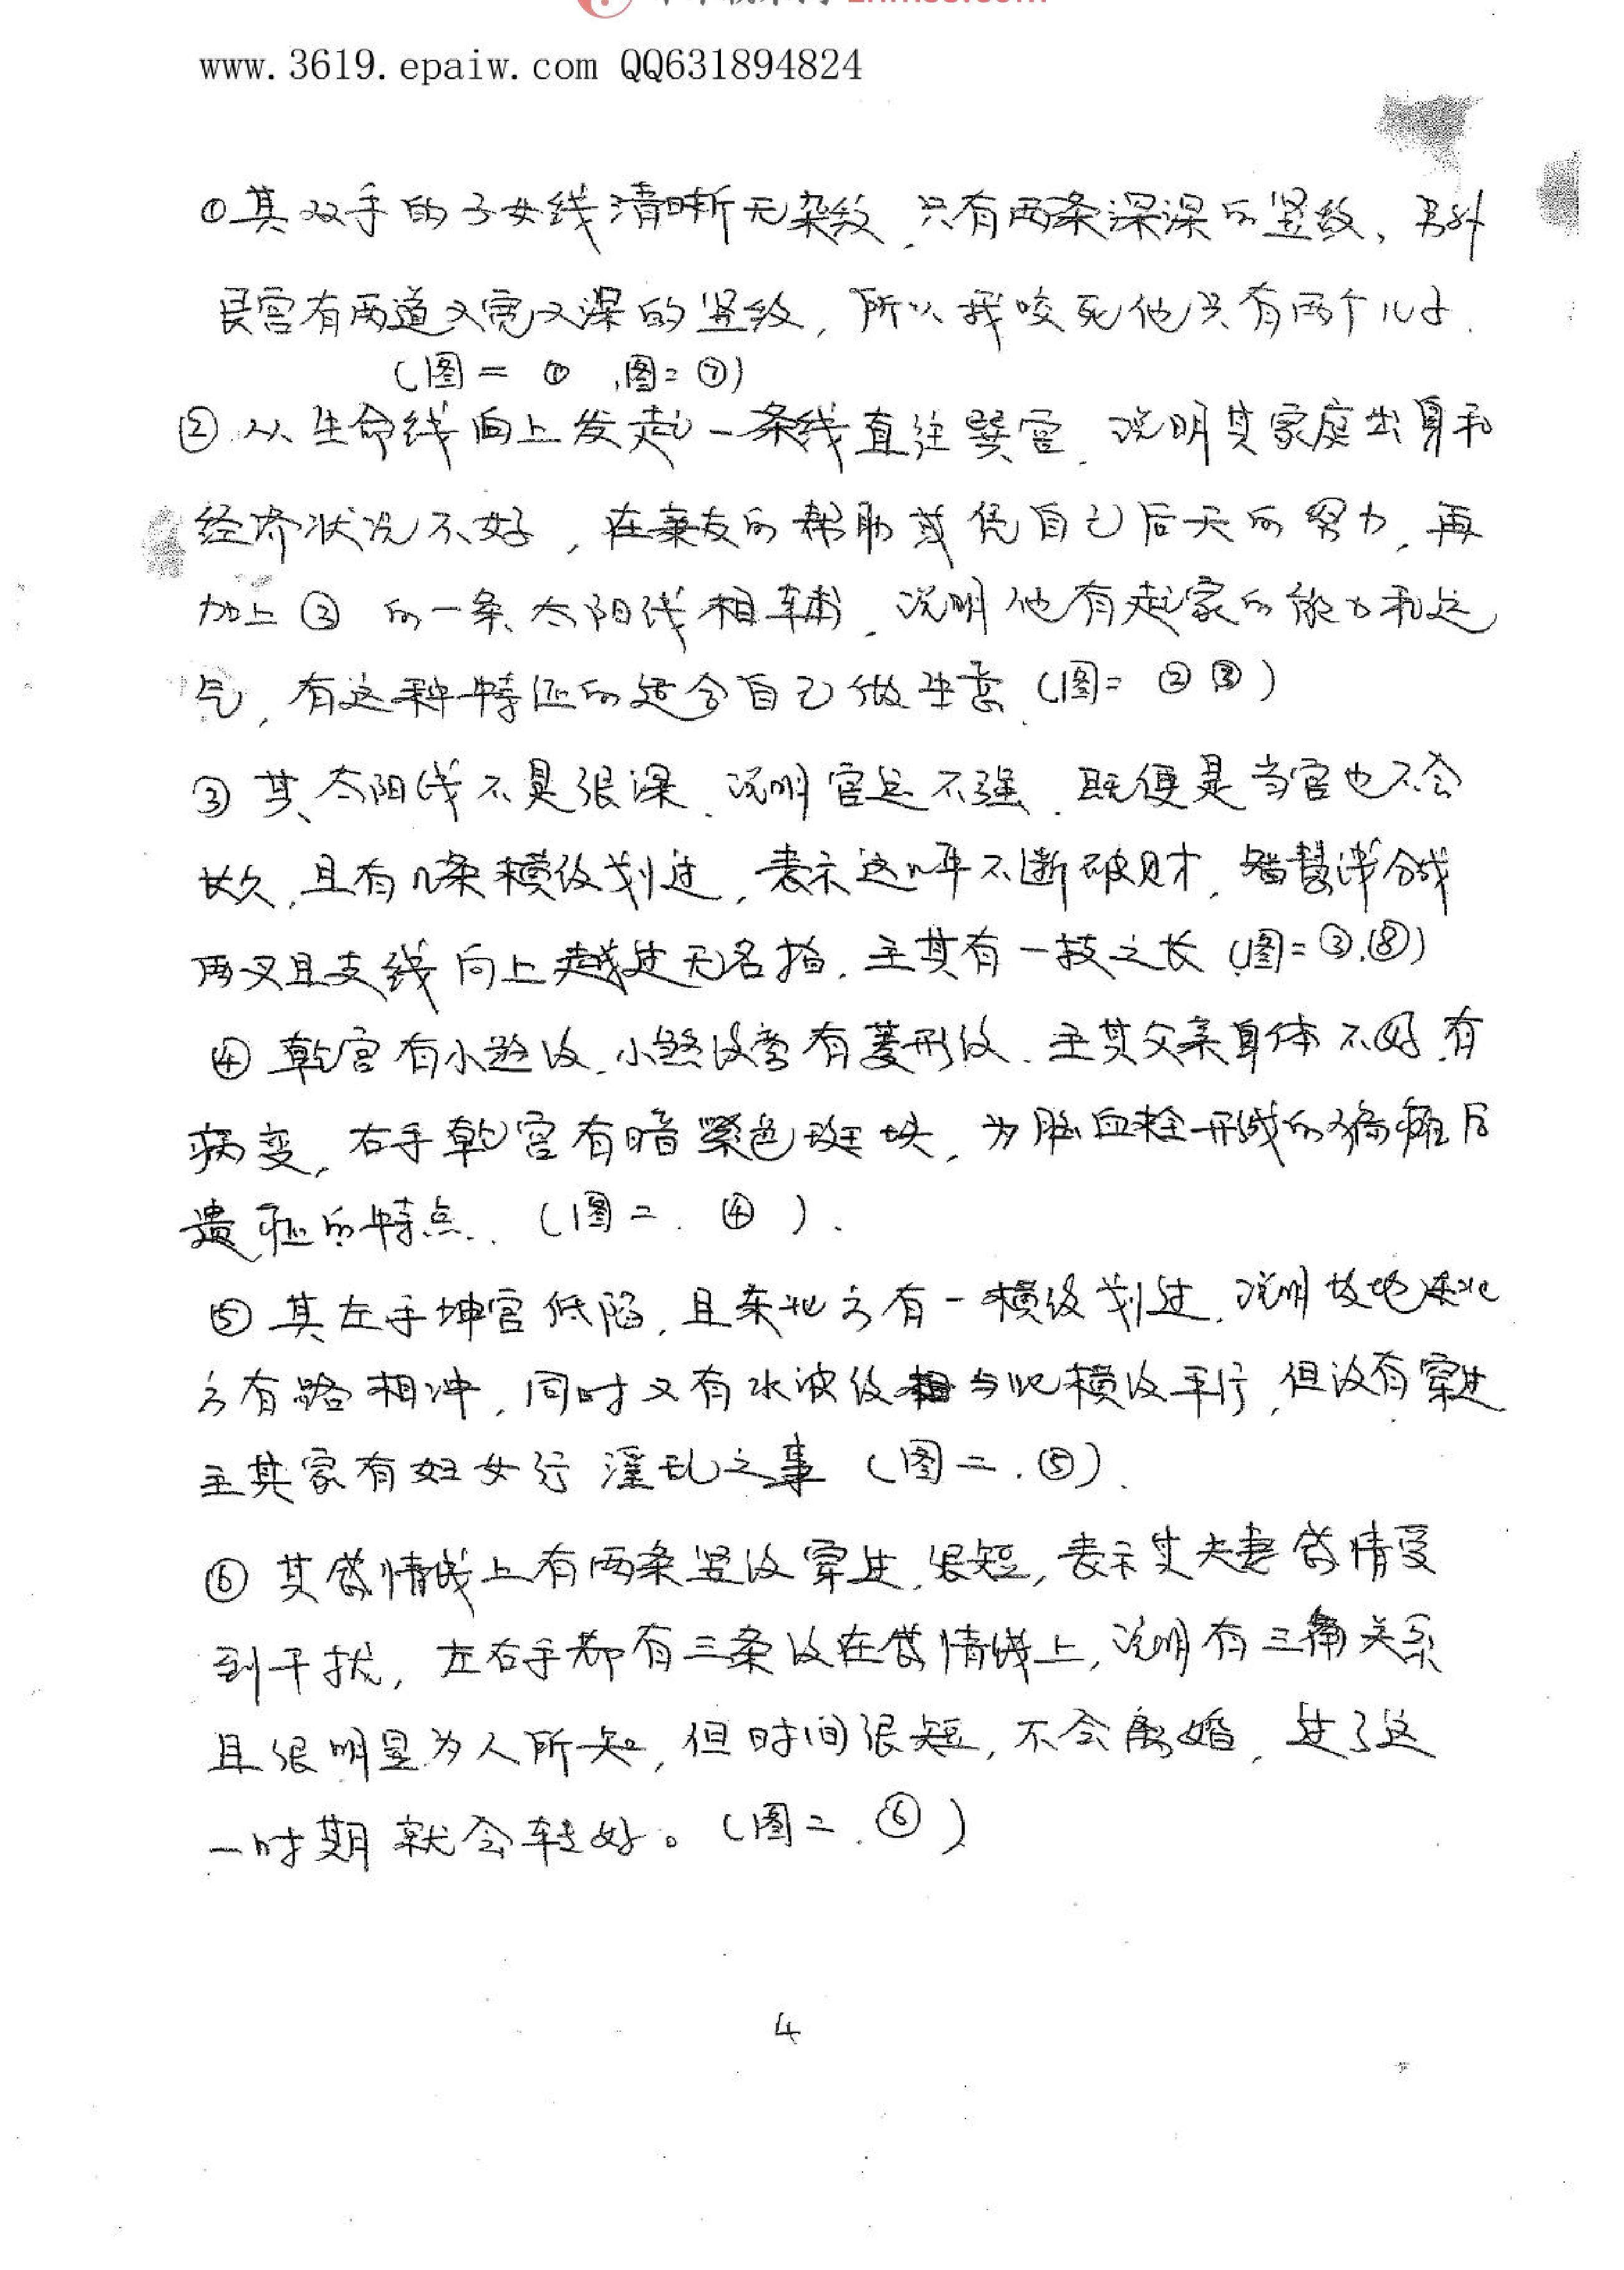 www.3619.epaiw.com QQ631894824
①其双手的子女线清晰无杂纹，只有两条深深的竖纹、另外
艮宫有两道又宽又深的竖纹，所以我咬死他只有两个儿子.
（图二 ①，图二⑦）
②从生命线向上发起一条线直往巽宫，说明其家庭出身和
经济状况不好，在亲友的帮助或凭自己后天的努力，再
加上③的一条太阳线相辅，说明他有起家的能力和运
气，有这种特征的适合自己做生意（图二 ②③）
③其太阳线不是很深，说明官运不强，既便是当官也不会
长久，且有几条横纹划过，表示这几年不断破财，智慧线分成
两叉且支线向上越过无名指，主其有一技之长（图二③.⑧）
④乾宫有小 纹，小 纹旁有菱形纹，主其父亲身体不好，有
病变，右手乾宫有暗紫色斑块，为脑血栓形成的偏瘫后
遗症的特点．（图二．④）．
⑤其左手坤宫低陷，且东北方有一横纹划过，说明坟地东北
方有路相冲，同时又有水波纹与此横纹平行，但没有穿过
主其家有妇女行淫乱之事（图二．⑤）．
⑥其感情线上有两条竖纹穿过，很短，表示其夫妻感情受
到干扰，左右手都有三条纹在感情线上，说明有三角关系
且很明显为人所知，但时间很短，不会离婚，过了这
一时期就会转好。（图二．⑥）
4